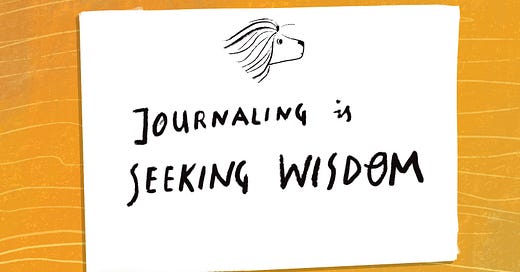 JOURNALING is
SEEKING WISDOM